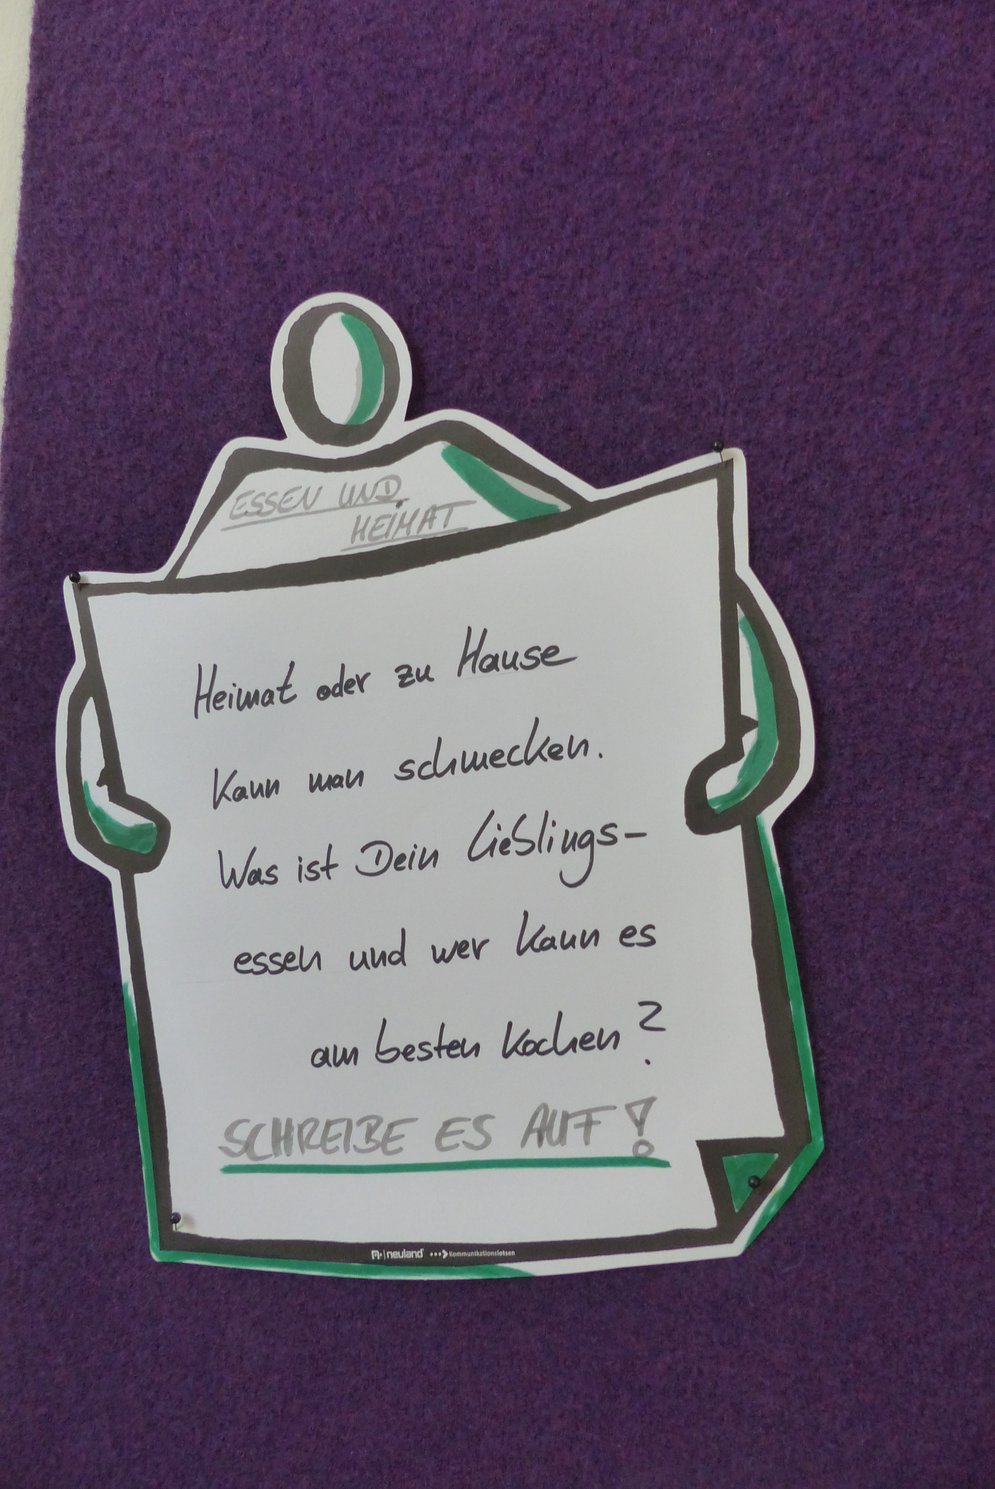 ESSEN UND
HEIMAT
Heimat oder zu Hause
kann man schmecken.
Was ist Dein Lieblings-
essen und wer kann es
am besten kochen?
SCHREIBE ES AUF!
neuland Kommunikationslotsen